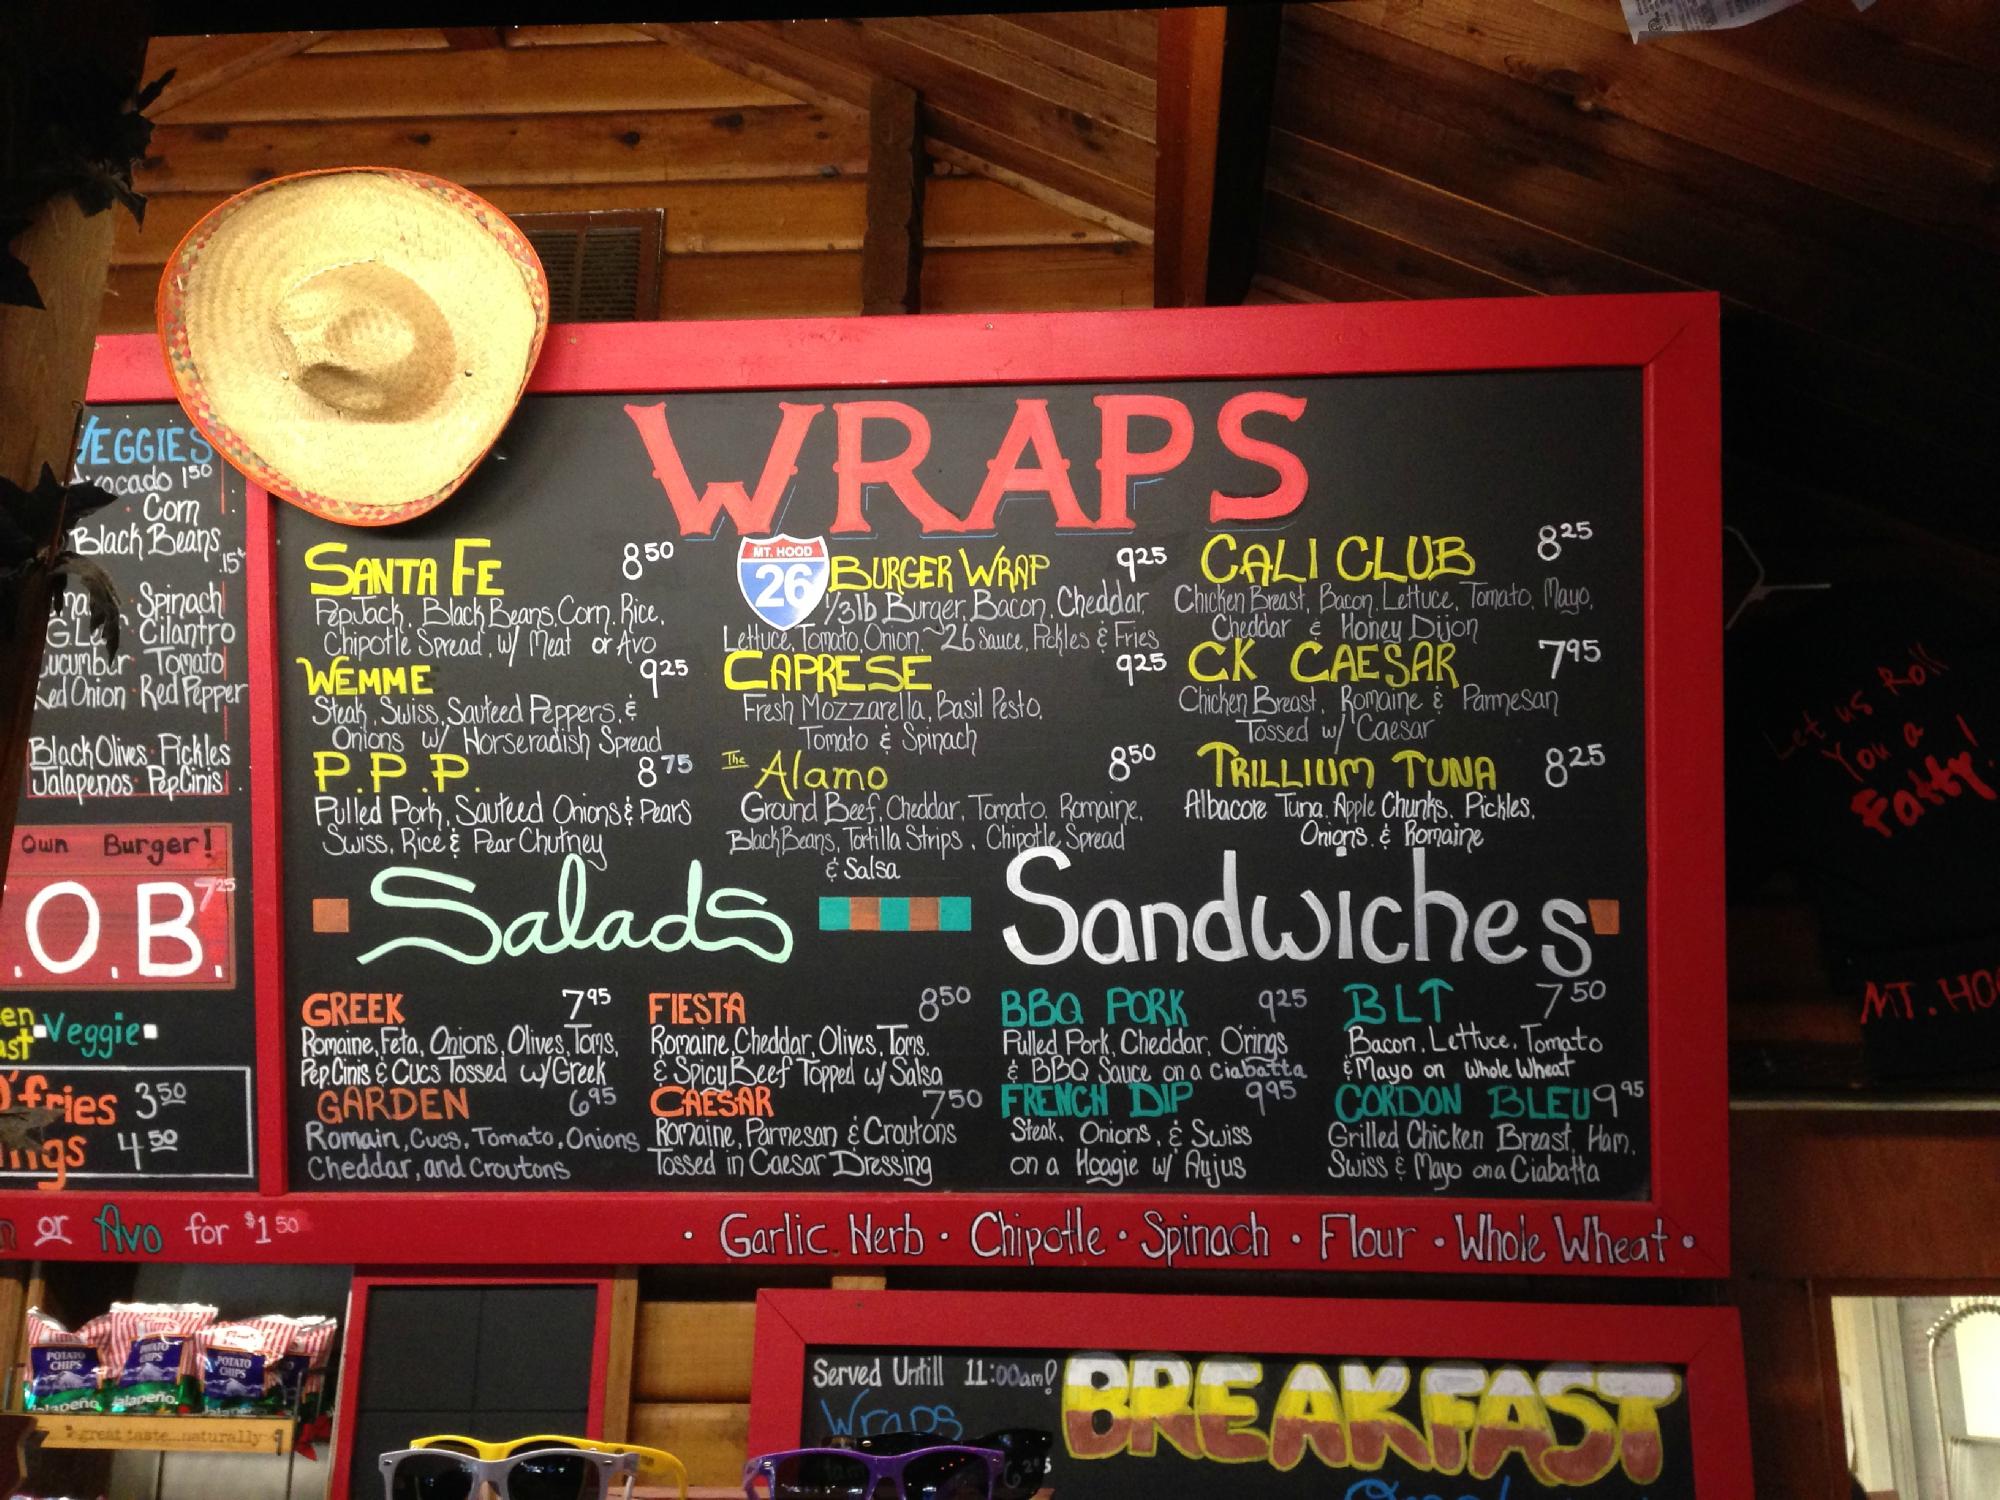 VEGGIES
Avocado 1.50
Corn
Black Beans
.15¢
Spinach
Cilantro
Cucumber Tomato
Red Onion · Red Pepper
Black Olives · Pickles
Jalapenos · Pep.Cinis
Own Burger!
.O.B. 7.25
Veggie
O'fries 3.50
4.50
or Avo for $1.50
WRAPS
SANTA FE 8.50
PepJack, Black Beans, Corn, Rice,
Chipotle Spread, w/ Meat or Avo
WEMME 9.25
Steak, Swiss, Sauteed Peppers, &
Onions w/ Horseradish Spread
P.P.P. 8.75
Pulled Pork, Sauteed Onions & Pears
Swiss, Rice & Pear Chutney
MT. HOOD
26 BURGER WRAP 9.25
1/3lb Burger, Bacon, Cheddar,
Lettuce, Tomato, Onion, ~26 Sauce, Pickles & Fries
CAPRESE 9.25
Fresh Mozzarella, Basil Pesto,
Tomato & Spinach
The Alamo 8.50
Ground Beef, Cheddar, Tomato, Romaine,
Black Beans, Tortilla Strips, Chipotle Spread
& Salsa
CALI CLUB 8.25
Chicken Breast, Bacon, Lettuce, Tomato, Mayo,
Cheddar & Honey Dijon
CK CAESAR 7.95
Chicken Breast, Romaine & Parmesan
Tossed w/ Caesar
TRILLIUM TUNA 8.25
Albacore Tuna, Apple Chunks, Pickles,
Onions, & Romaine
Salads
GREEK 7.95
Romaine, Feta, Onions, Olives, Toms,
Pep.Cinis & Cucs Tossed w/ Greek
GARDEN 6.95
Romain, Cucs, Tomato, Onions
Cheddar, and Croutons
FIESTA 8.50
Romaine, Cheddar, Olives, Toms,
& Spicy Beef Topped w/ Salsa
CAESAR 7.50
Romaine, Parmesan & Croutons
Tossed in Caesar Dressing
Sandwiches
BBQ PORK 9.25
Pulled Pork, Cheddar, O'rings
& BBQ Sauce on a Ciabatta
FRENCH DIP 9.95
Steak, Onions, & Swiss
on a Hoagie w/ Aujus
BLT 7.50
Bacon, Lettuce, Tomato
& Mayo on Whole Wheat
CORDON BLEU 9.95
Grilled Chicken Breast, Ham,
Swiss & Mayo on a Ciabatta
· Garlic Herb · Chipotle · Spinach · Flour · Whole Wheat ·
Let us Roll
You a
Fatty!
MT. HOO
Tim's
POTATO CHIPS
Jalapeño
POTATO CHIPS
Jalapeño
POTATO CHIPS
great taste...naturally
Served Untill 11:00am!
Wraps
BREAKFAST